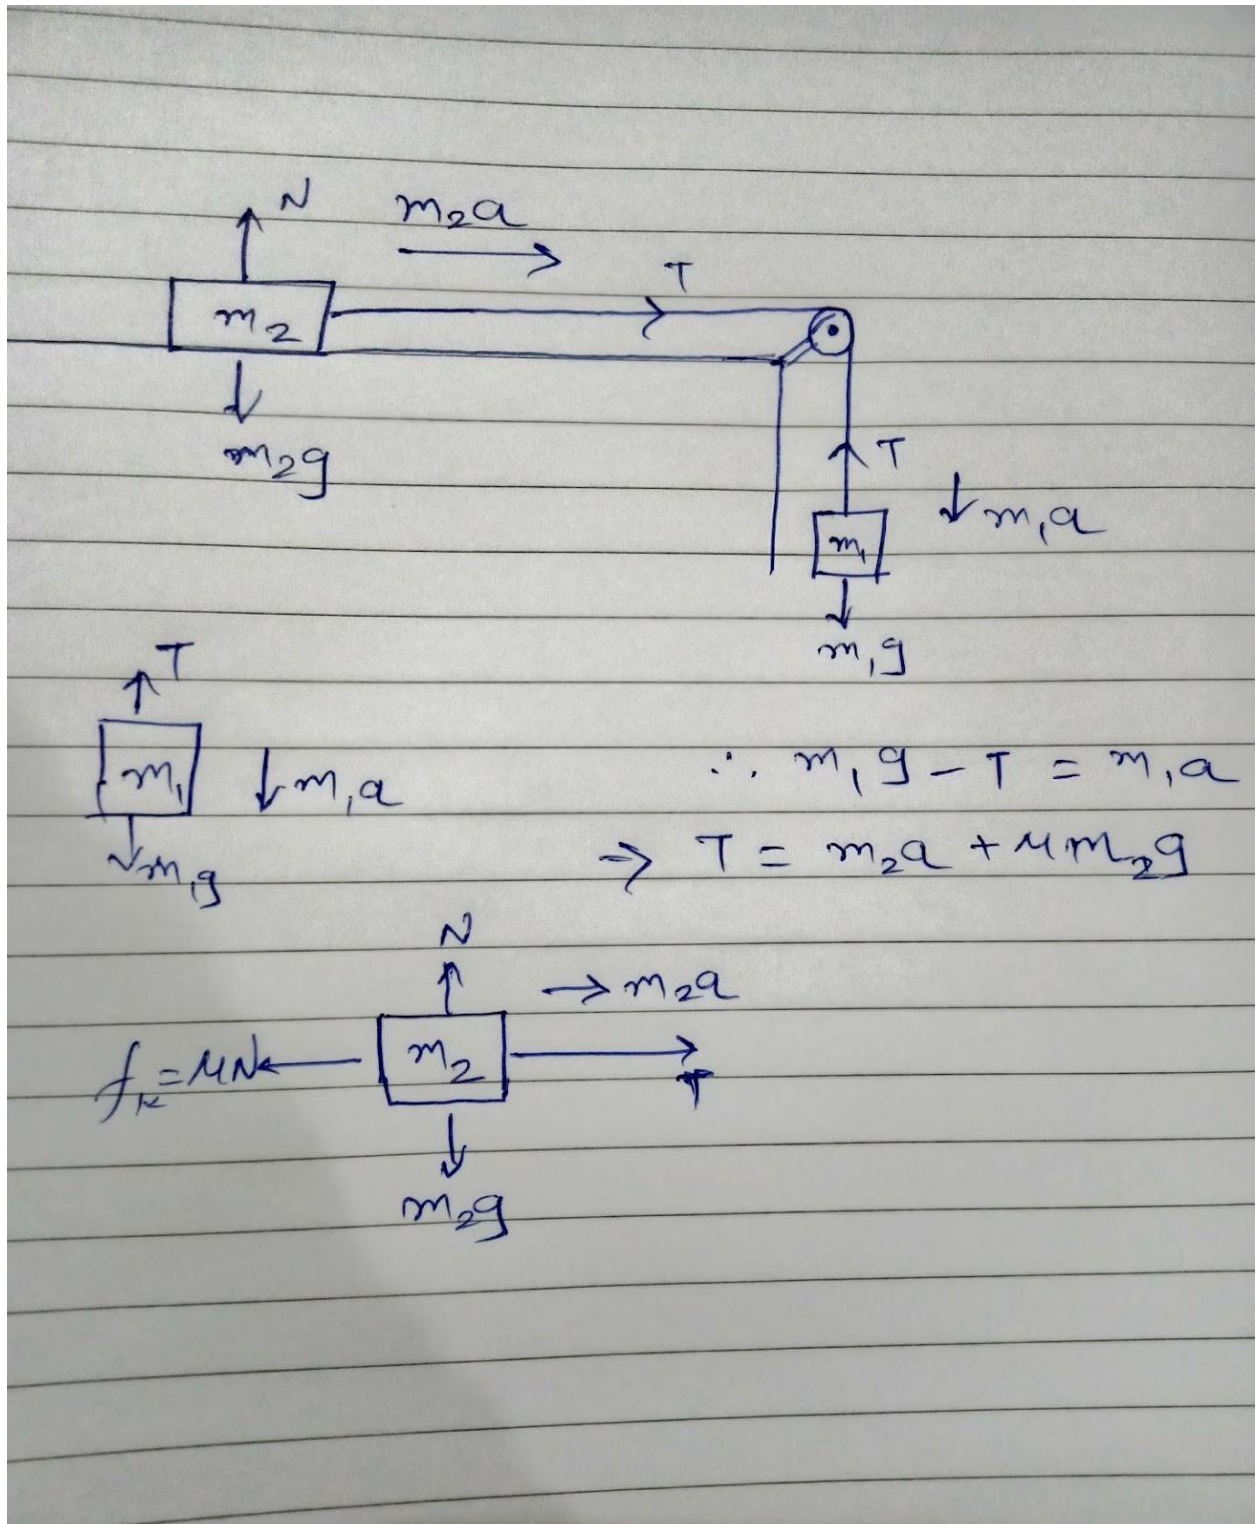 N
m₂a
T
m₂
m₂g
T
m₁a
m₁
m₁g
T
m₁
m₁a
∴ m₁g - T = m₁a
m₁g
⇒ T = m₂a + μm₂g
N
m₂a
fₖ = μN
m₂
T
m₂g